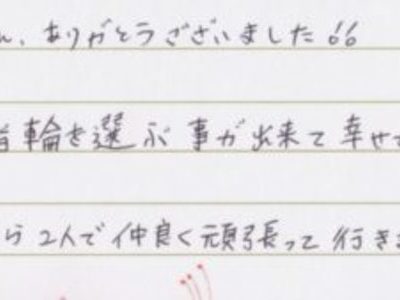 ん、ありがとうございました!!
輪を選ぶ事が出来て幸せ
ら2人で仲良く頑張って行きま